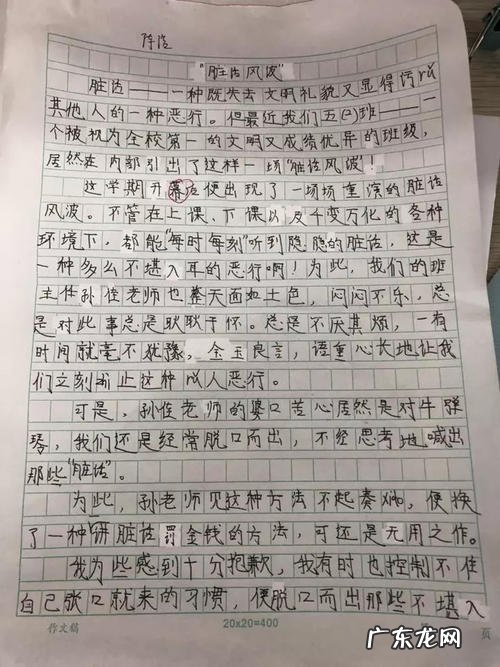 陈浩
"脏话风波"
脏话——一种既失去文明礼貌又显得污
其他人的一种恶行。但最近我们五(2)班——一
个被视为全校第一的文明又成绩优异的班级,
居然在内部引出了这样一场"脏话风波"!
这学期开幕后便出现了一场场重演的脏话
风波。不管在上课、下课以及千变万化的各种
环境下,都能"每时每刻"听到隐隐的脏话,这是
一种多么不堪入耳的恶行啊!为此,我们的班
主任孙佳老师也整天面如土色,闷闷不乐,总
是对此事总是耿耿于怀。总是不厌其烦,一有
时间就毫不犹豫,金玉良言,语重心长地让我
们立刻停止这种以人恶行。
可是,孙佳老师的婆口苦心居然是对牛弹
琴,我们还是经常脱口而出,不经思考地喊出
那些"脏话"。
为此,孙老师见这种方法不起奏,便换
了一种讲脏话罚金钱的方法,可还是无用之作。
我为些感到十分抱歉,我有时也控制不住
自己张口就来的习惯,便脱口而出那些不堪入
作文稿
20x20=400
页
广东龙网